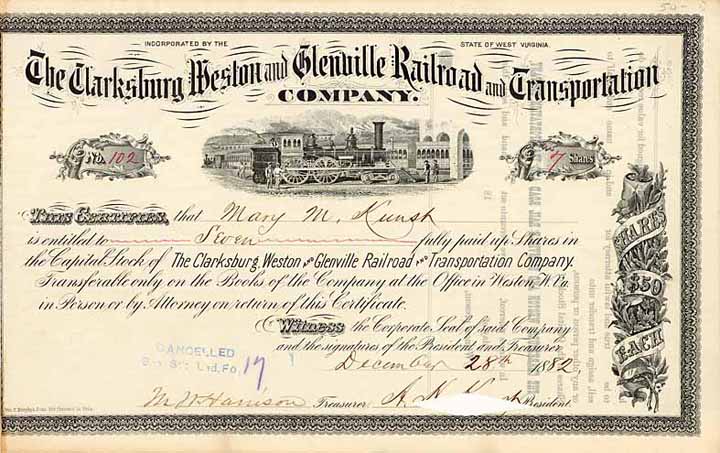 50-
INCORPORATED BY THE STATE OF WEST VIRGINIA.
The Clarksburg Weston and Glenville Railroad and Transportation
COMPANY.
No. 102
7 Shares
This Certifies, that Mary M. Kunst
is entitled to Seven fully paid up Shares in
the Capital Stock of The Clarksburg, Weston and Glenville Railroad and Transportation Company.
Transferable only on the Books of the Company at the Office in Weston, W. Va.
in Person or by Attorney on return of this Certificate.
Witness the Corporate Seal of said Company
and the signatures of the President and Treasurer
December 28th 1882
SHARES
$50
EACH
CANCELLED
17
M W Harrison Treasurer
President